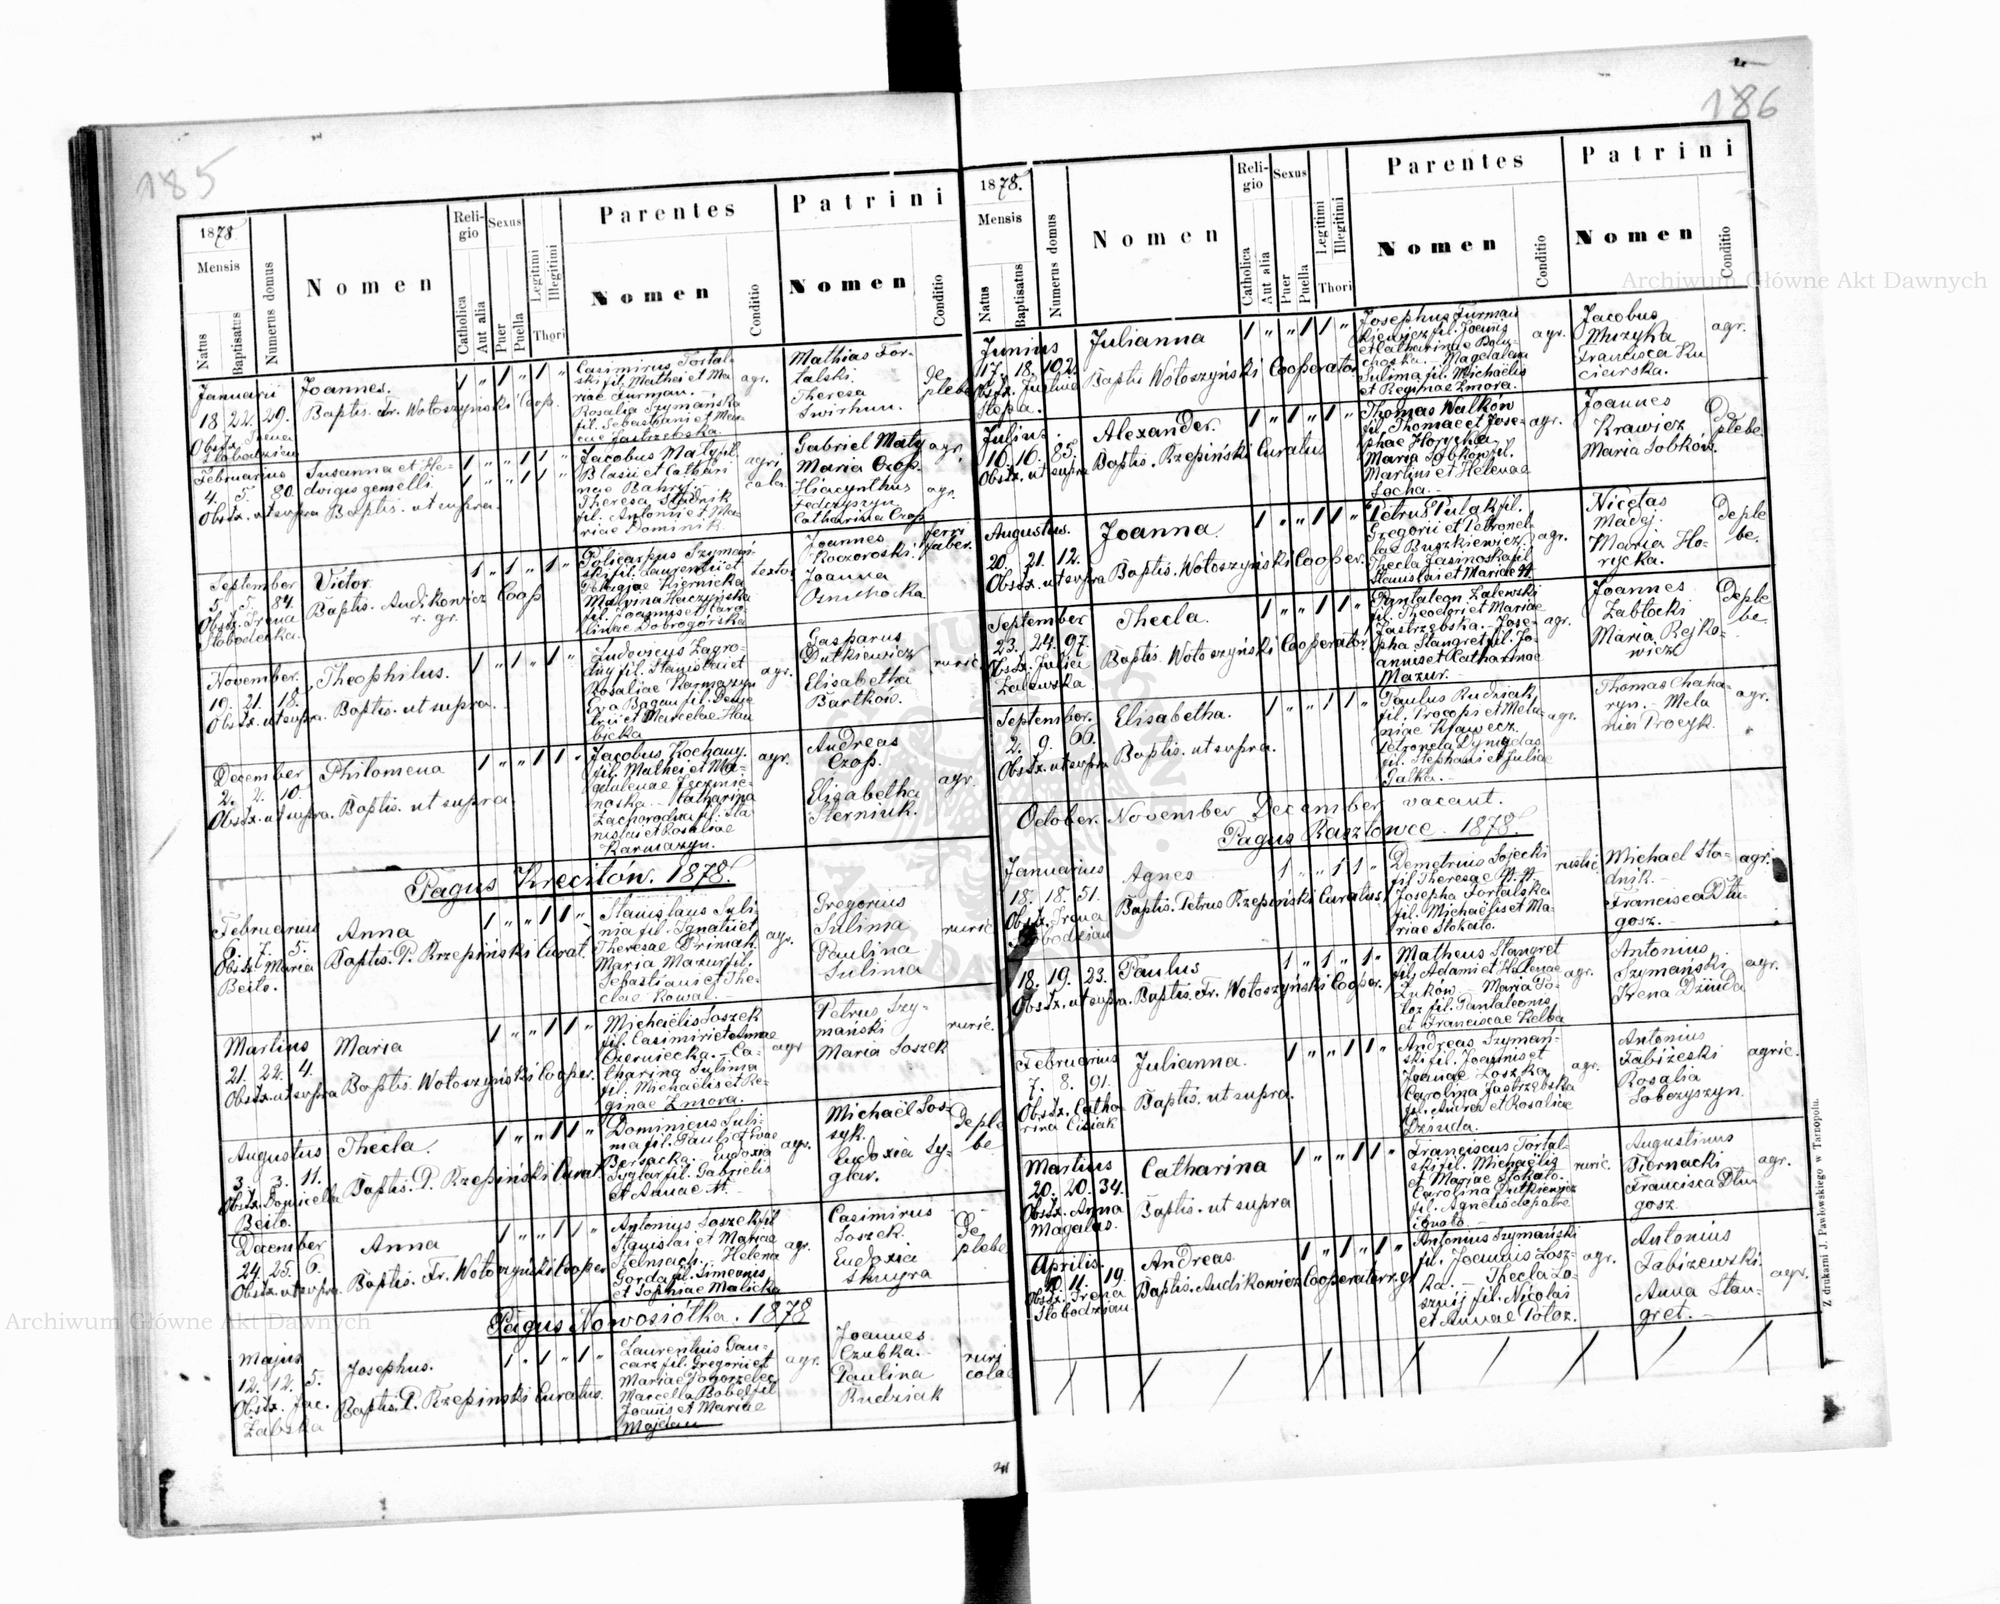 185
1878
Mensis
Natus
Baptisatus
Numerus domus
Nomen
Religio
Catholica
Aut alia
Sexus
Puer
Puella
Legitimi
Illegitimi
Thori
Parentes
Nomen
Conditio
Patrini
Nomen
Conditio
Januarii
18. 22. 29.
Obstx. Irena
Joannes.
Baptis. Fr. Wołoszyński Coop.
1 " 1 " 1 "
Casimirus Fortal-
ski fil. Mathei et Ma-
riae Furman.
Rosalia Szymańska
fil. Sebastiani et Mar-
iae Jastrzebska.
agr.
Mathias For-
talski.
Theresa
Swirhun.
de
plebe
Februarius
4. 5. 80.
Obstx. ut supra
Susanna et He-
dvigis gemelli.
Baptis. ut supra.
1 " " 1 1 "
1 " " 1 1 "
Jacobus Maty fil.
Blasii et Cathari
nae Bahryj.
Theresa Stadnik
fil. Antonii et Ma-
riae Dominik.
agri
cola.
Gabriel Maty
Maria Czop.
Hiacynthus
Fedczyszyn
Catharina Czop
agr.
agr.
September
5. 5. 84.
Obstx. Irena
Słobodecka.
Victor
Baptis. Audikowicz Coop
r. gr.
1 " 1 " 1 "
Policarpus Szymań-
ski fil. Laurentii et
Pelagiae Kiernicka
Malvina Haczyńska
fil. Joannis et Caro-
linae Dobrogórska
textor
Joannes
Kaczoroski.
Joanna
Osuchocka
ferri
faber.
November.
19. 21. 18.
Obstx. ut supra.
Theophilus.
Baptis. ut supra.
1 " 1 " 1 "
Ludovicus Zagro-
dny fil. Stanislai et
Rosaliae Karmazyn
Eva Bagan fil. Deme
trii et Marcelae Hau
bicka
agr.
Gasparus
Dutkiewicz
Elisabetha
Bartków.
ruric.
December
2. 2. 10.
Obstx. ut supra.
Philomena
Baptis. ut supra
1 " " 1 1 "
Jacobus Kochany.
fil. Mathei et Ma-
gdalenae
Catharina
Zachorodna fil. Sta
nislai et Rosaliae
Karmazyn.
agr.
Andreas
Czop.
Elisabetha
Sterniuk.
agr.
Pagus Krecitów. 1878.
Februarius
6. 7. 5.
Obstx. Maria
Beito.
Anna
Baptis. P. Rzepiński Curat.
1 " " 1 1 "
Stanislaus Suli-
ma fil. Ignatii et
Theresae Primak.
Maria Mazur fil.
Sebastiani et The-
clae Kowal.
agr.
Gregorius
Sulima
Paulina
Sulima
ruric.
Martius
21. 22. 4.
Obstx. ut supra
Maria
Baptis. Wołoszyński Cooper.
1 " " 1 1 "
Michaëlis Soszek
fil. Casimiri et Annae
Czerniecka. Ca-
tharina Sulima
fil. Michaëlis et Re-
ginae Zmora.
agr
Petrus Szy-
mański
Maria Soszek
ruric.
Augustus
3. 3. 11.
Obstx. Dominicella
Beito.
Thecla.
Baptis. P. Rzepiński Curat.
1 " " 1 1 "
Dominicus Suli-
ma fil. Pauli et Evae
Bersacka. Eudoxia
Syglar fil. Gabrielis
et Annae N.
agr.
Michaël Sos-
zyk.
Eudoxia Sy-
glar.
De ple
be
December
24. 25. 6.
Obstx. ut supra.
Anna
Baptis. Fr. Wołoszyński Cooper
1 " " 1 1 "
Antonius Soszek fil
Stanislai et Mariae
Stelmach. Helena
Gorda fil. Simeonis
et Sophiae Malicka
agr.
Casimirus
Soszek.
Eudoxia
Shmyra
De
plebe
Pagus Nowosiółka. 1878
Majus
12. 12. 5.
Obstx. Jac.
Zabska
Josephus.
Baptis. P. Rzepinski Curatus.
1 " 1 " 1 "
Laurentius Gan-
carz fil. Gregorii et
Mariae Pogorzelec
Marcella Bobel fil
Joannis et Mariae
Majdan
agr.
Joannes
Czubka.
Paulina
Rudziak
ruri
colae
186
1878.
Mensis
Natus
Baptisatus
Numerus domus
Nomen
Religio
Catholica
Aut alia
Sexus
Puer
Puella
Legitimi
Illegitimi
Thori
Parentes
Nomen
Conditio
Patrini
Nomen
Conditio
Junius
17. 18. 102.
Obstx. Justine
Slepa.
Julianna
Baptis Wołoszyński Cooperator
1 " " 1 1 "
Josephus Furman
kiewicz fil. Joannis
et Catharinae
Magdalena
Sulima fil. Michaëlis
et Reginae Zmora.
agr.
Jacobus
Muzyka
Francisca Ku
cierska.
agr.
Julius
16. 16. 85.
Obstx. ut supra
Alexander.
Baptis. Rzepiński Curatus
1 " 1 " 1 "
Thomas Walków
fil. Thomae et Jose-
phae Horycka
Maria Sobków fil.
Martini et Helenae
Locha.
agr.
Joannes
Krawicz
Maria Sobków.
D
plebe
Augustus.
20. 21. 12.
Obstx. ut supra
Joanna
Baptis. Wołoszyński Cooper.
1 " " 1 1 "
Petrus Pulak fil.
Gregorii et Petronel-
lae Buszkiewicz
Thecla Jasinoska fil
Stanislai et Mariae N.
agr.
Nicetas
Madej.
Maria Ho-
rycka.
De ple
be.
September
23. 24. 97.
Obstx. Julia
Zalewska
Thecla.
Baptis. Wołoszyński Cooperator
1 " " 1 1 "
Pantaleon Zalewski
fil. Theodori et Mariae
Jastrzebska. Jose-
pha Stangret fil. Jo-
annis et Catharinae
Mazur.
agr.
Joannes
Zabłocki
Maria Rejko-
wicz
De ple
be
September.
2. 9. 66.
Obstx. ut supra
Elisabetha.
Baptis. ut supra.
1 " " 1 1 "
Paulus Rudziak
fil. Procopi et Mela-
niae Kławecz.
Petronela Dymydas
fil. Stephani et Juliae
Galka.
agr.
Thomas Chaha-
ryn. Mela
nia Procyk.
agr.
October. November December vacant.
Pagus Rasztowce. 1878.
Januarius
18. 18. 51.
Obstx. Irena
Słobodzian
Agnes
Baptis. Petrus Rzepiński Curatus
1 " " 1 1 "
Demetrius Sojecki
fil Theresae N. N.
Josepha Fortalska
fil. Michaëlis et Ma-
riae Stokato.
rustic.
Michael Sta-
dnik.
Francisca Dłu-
gosz.
agr.
18. 19. 23.
Obstx. ut supra.
Paulus
Baptis. Fr. Wołoszyński Cooper.
1 " 1 " 1 "
Matheus Stangret
fil. Adami et Helenae
Łuków. Maria Po-
toz fil. Pantaleonis
et Franciscae Kelba
agr.
Antonius
Szymański.
Irena Dziuda
agr.
Februarius
7. 8. 91.
Obstx. Catha
rina Cisiak
Julianna.
Baptis. ut supra.
1 " " 1 1 "
Andreas Szymań-
ski fil. Joannis et
Joannae Łoszka
Carolina Jastrzębska
fil. Andrea et Rosaliae
Dziuda.
agr.
Antonius
Fabizeski
Rosalia
Sobczyszyn.
agric.
Martius
20. 20. 34.
Obstx. Anna
Magalas.
Catharina
Baptis. ut supra
1 " " 1 1 "
Franciscus Fortal-
ski fil. Michaëlis
et Mariae Stokato.
Carolina Dutkiewicz
fil. Agnetis de patre
ignoto
ruric.
Augustinus
Biernacki
Francisca Dłu
gosz
agr.
Aprilis.
10. 11. 19.
Obstx. Irena
Słobodzian.
Andreas.
Baptis. Audikowicz Cooperater r. gr
1 " 1 " 1 "
Antonius Szymański
fil. Joannis Łosz-
ka. Thecla Lo-
sznij fil. Nicolai
et Annae Potoz.
agr.
Antonius
Fabizewski.
Anna Stan-
gret.
agr.
Z drukarni J. Pawłowskiego w Tarnopolu.
Archiwum Główne Akt Dawnych
Archiwum Główne Akt Dawnych